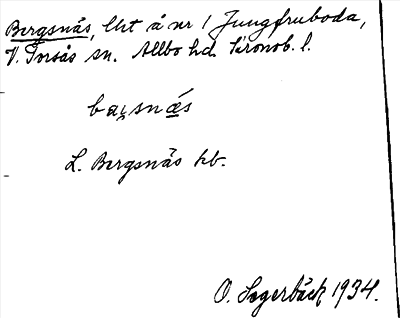 Bergsnäs, lht å nr 1 Jungfruboda,
V. Torsås sn. Allbo hd. Kronob. l.
baʂsnǽs
L. Bergsnäs hb.
O. Segerbäck 1934.